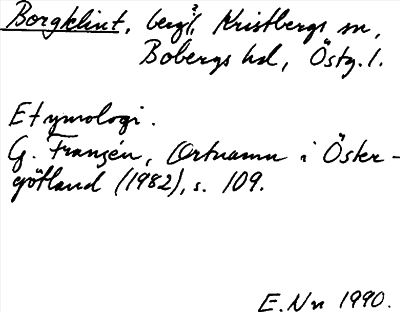 Borgklint, berg?, Kristbergs sn,
Bobergs hd, Östg. l.
Etymologi.
G. Franzén, Ortnamn i Öster-
götland (1982), s. 109.
E. Nn 1990.